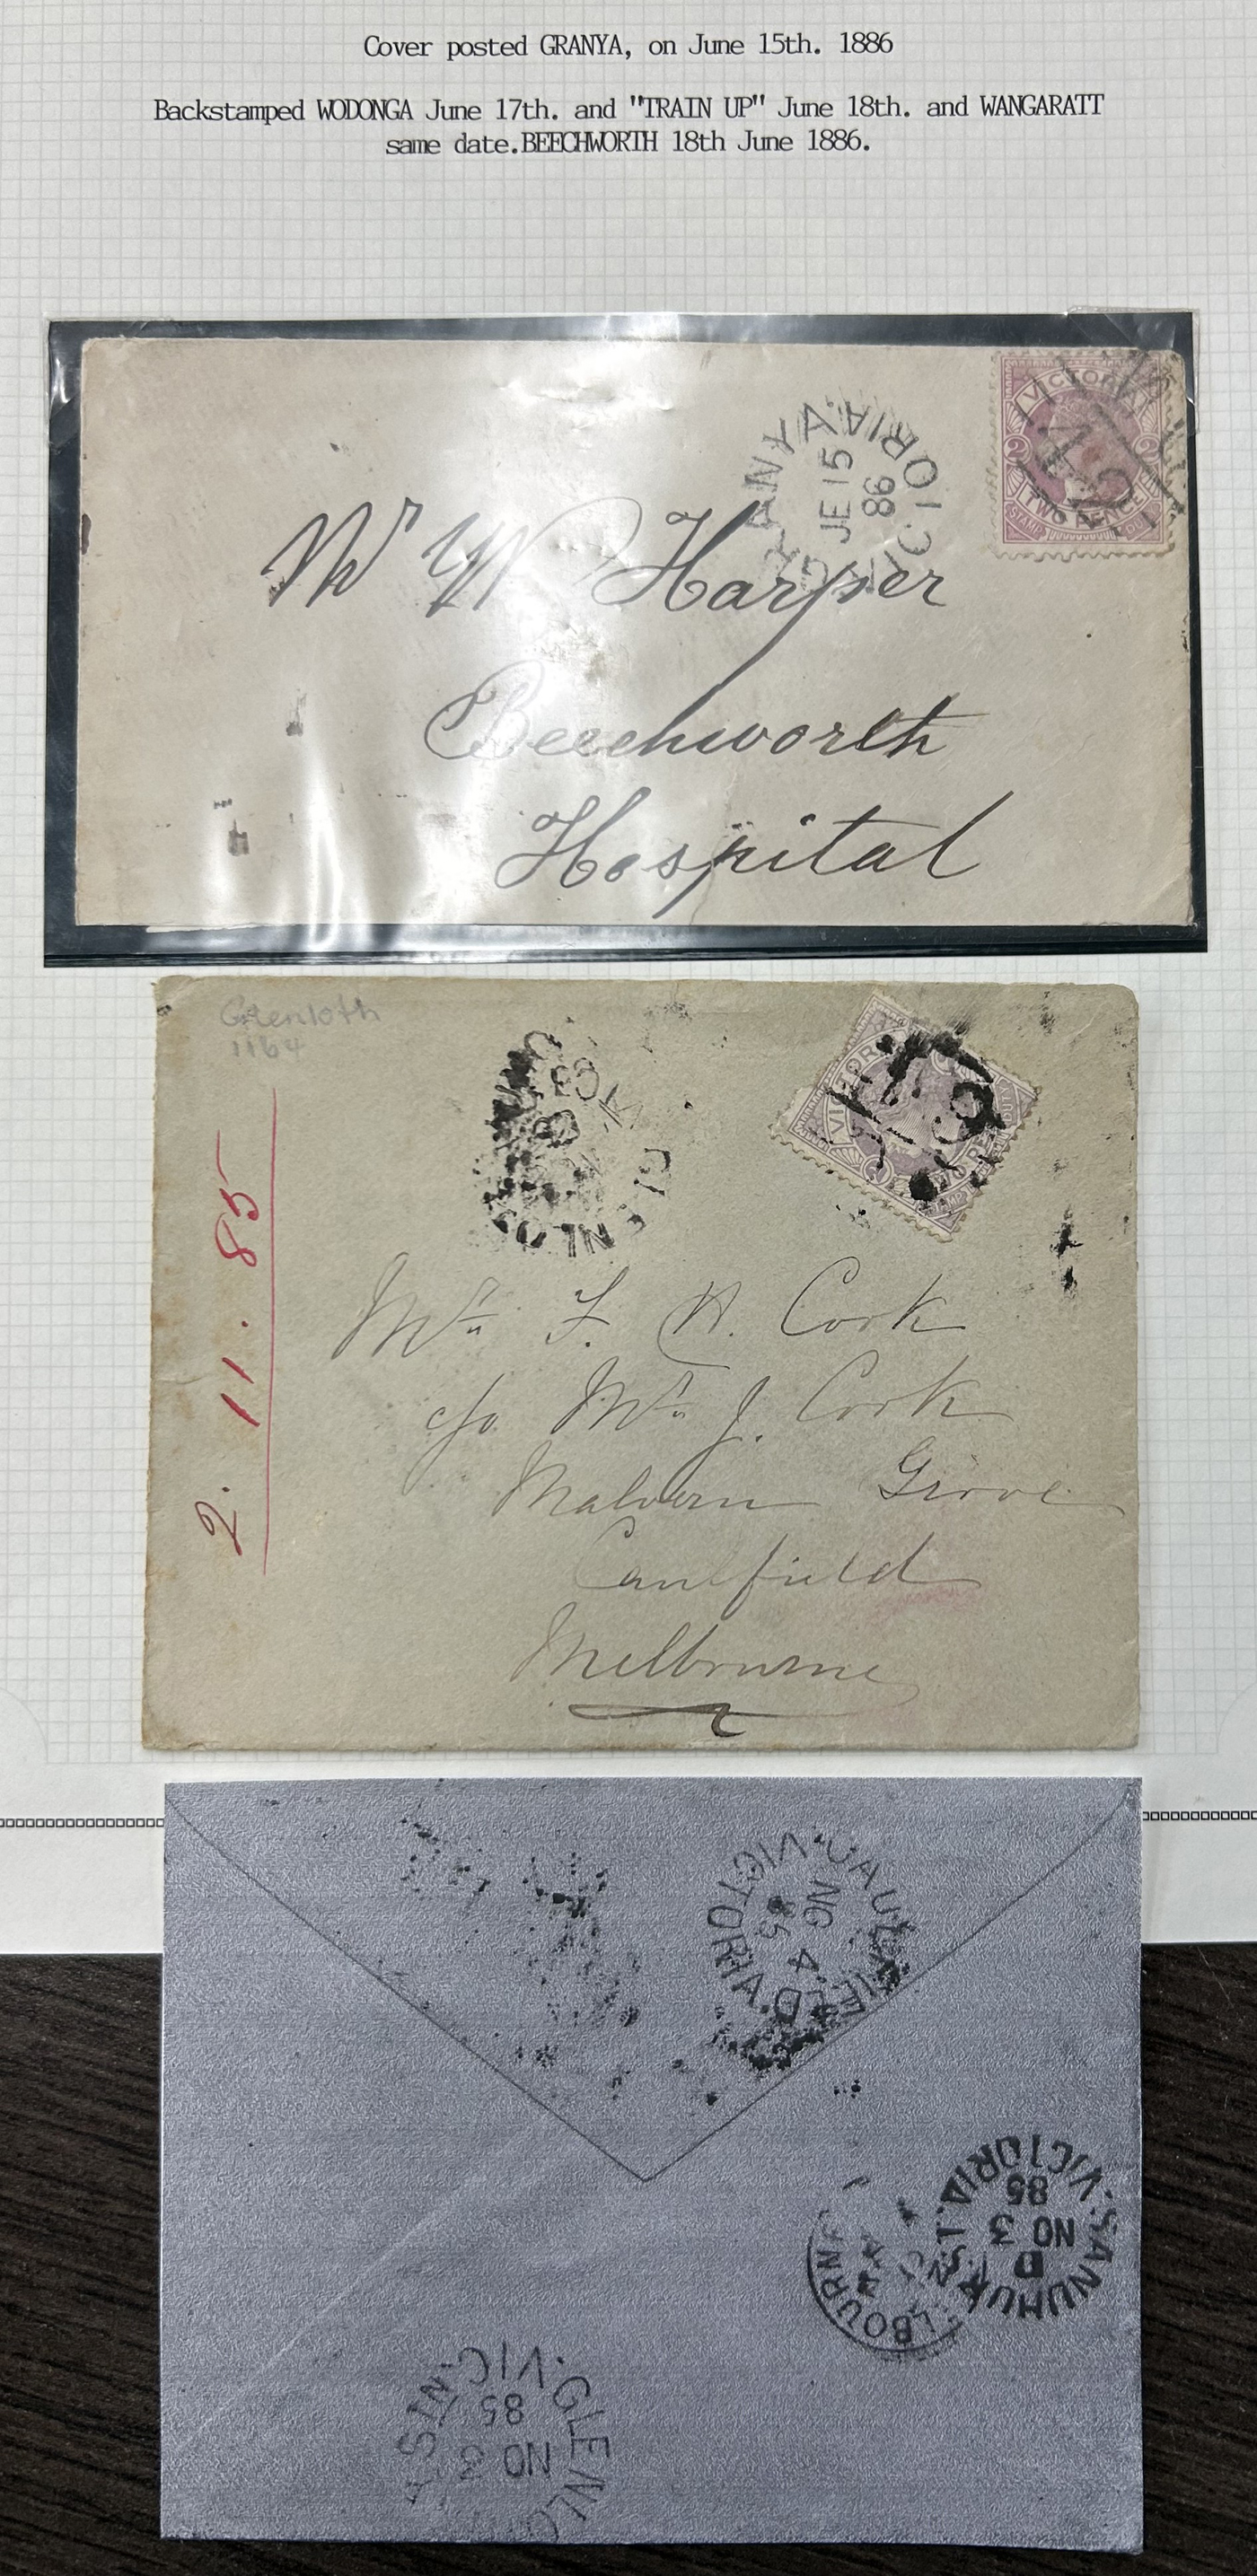 Cover posted GRANYA, on June 15th. 1886
Backstamped WODONGA June 17th. and "TRAIN UP" June 18th. and WANGARATT
same date.BEECHWORTH 18th June 1886.
VICTORIA
2 2
TWO PENCE
STAMP DUTY
GRANYA VICTORIA
JE 15
86
Mr W Harper
Beechworth
Hospital
Glenloth
1164
2. 11. 85
VICTORIA
Mr F. H. Cook
c/o Mr J. Cook
Malvern Grove
Caulfield
Melbourne
CAULFIELD VICTORIA
NO 4
85
SANDHURST VICTORIA
D
NO 3
85
LBOURN
GLENLO VIC
NO 3
85